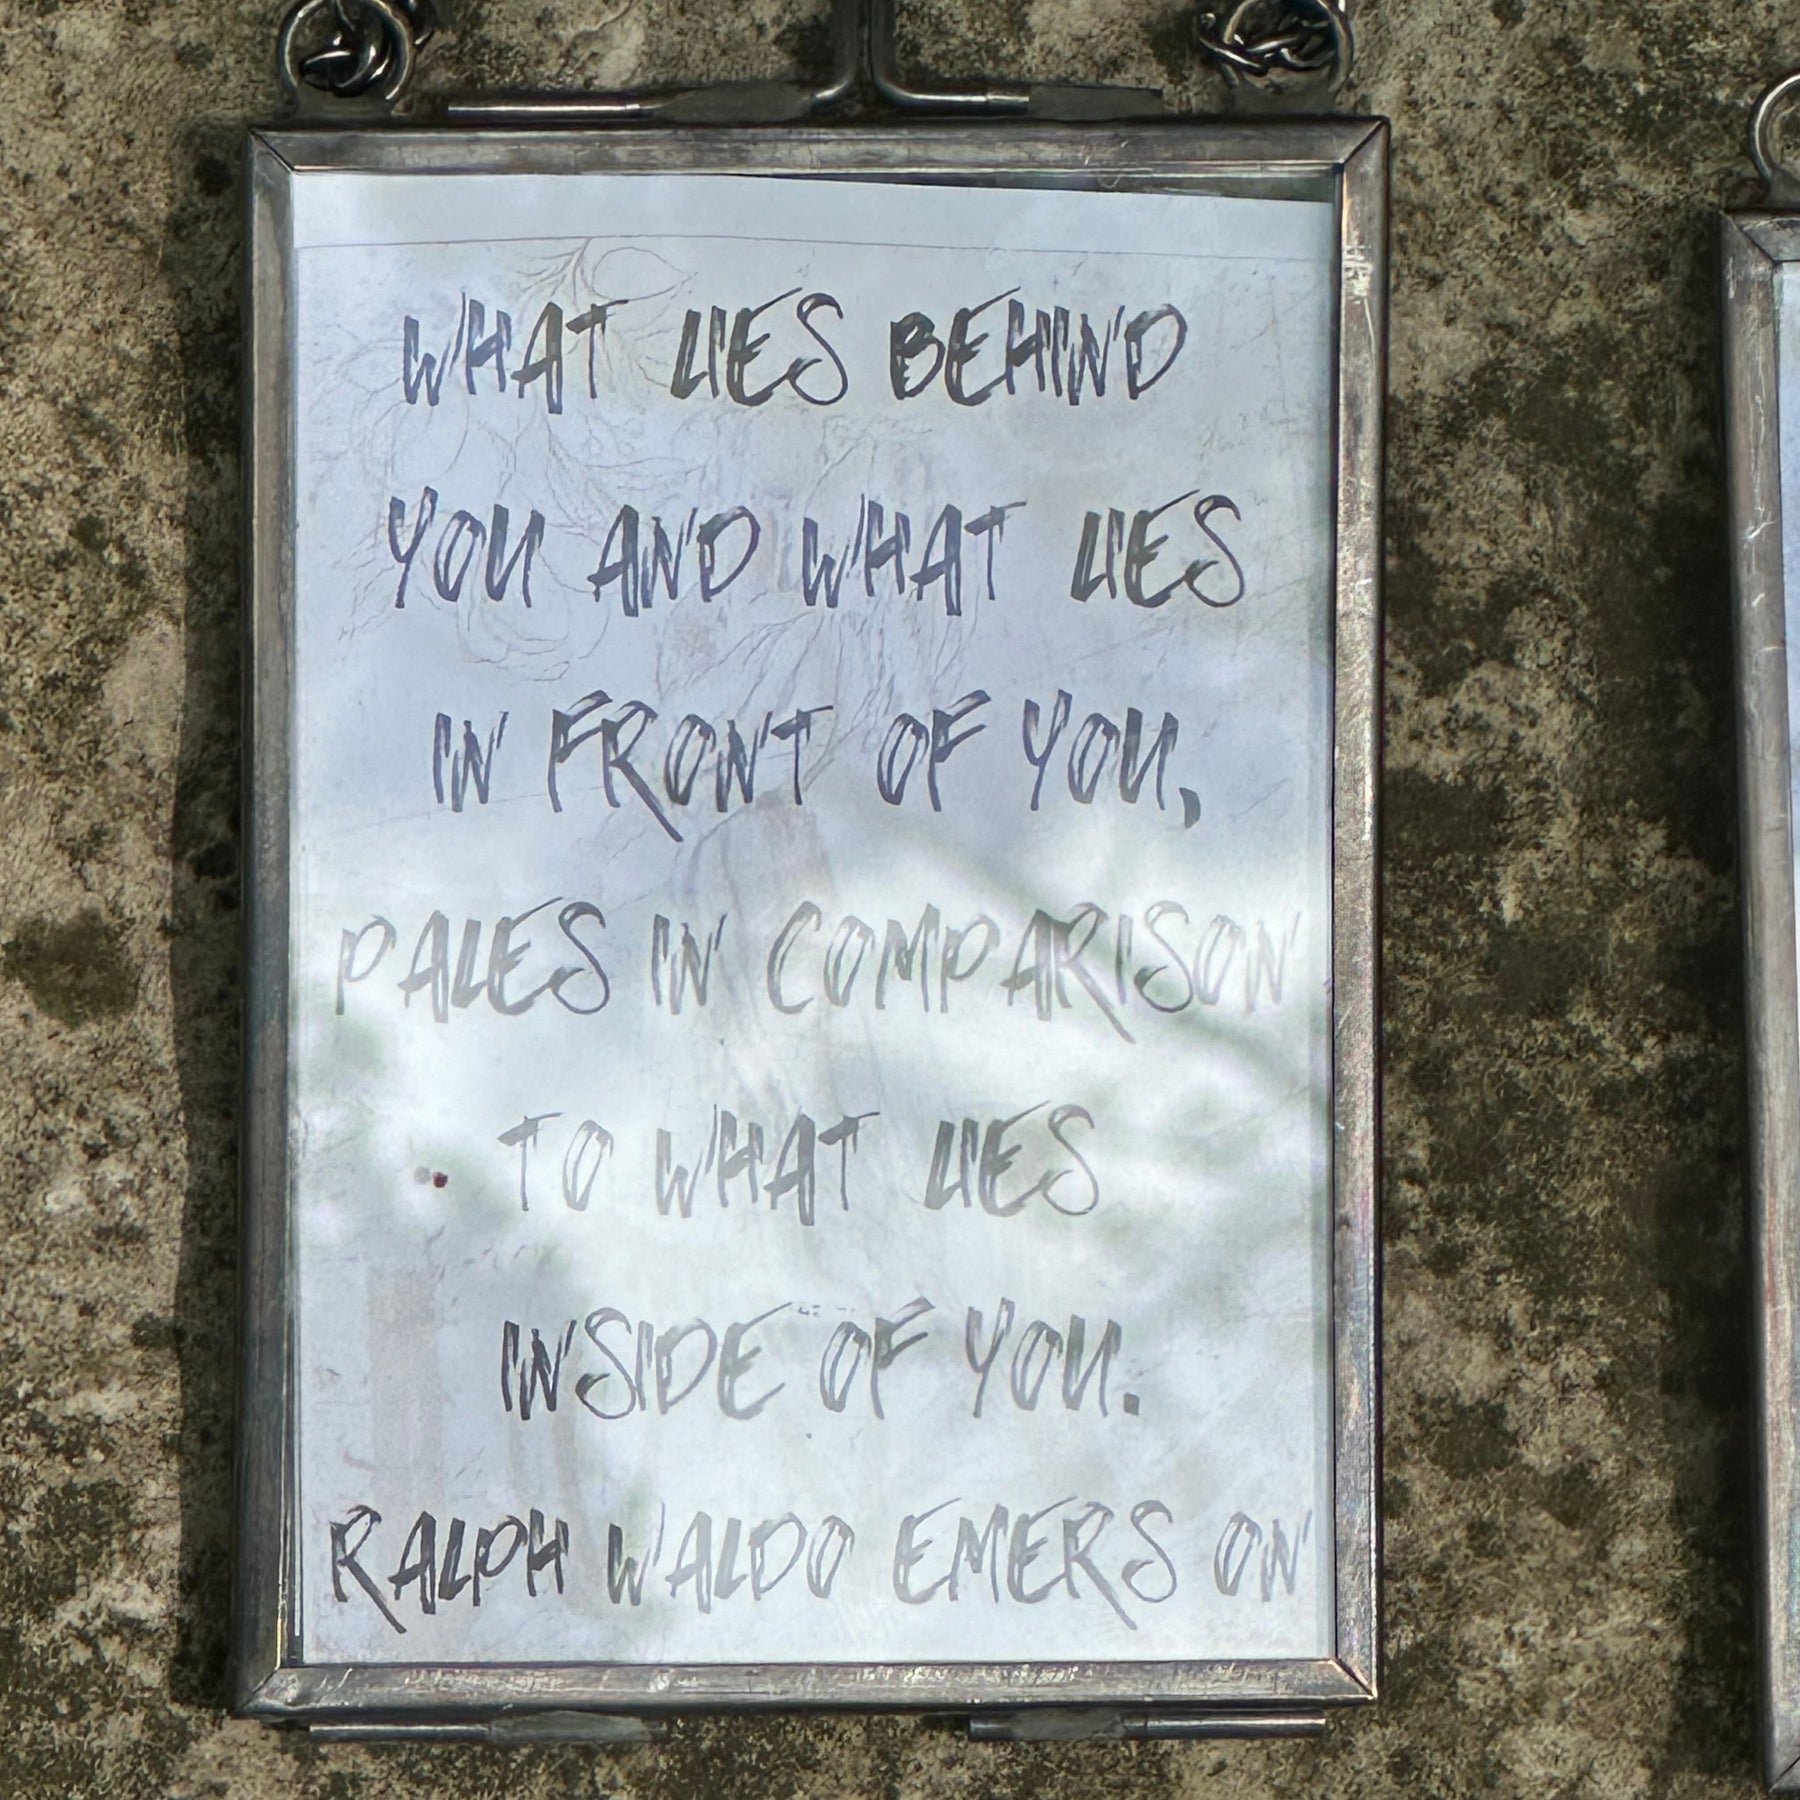 WHAT LIES BEHIND
YOU AND WHAT LIES
IN FRONT OF YOU,
PALES IN COMPARISON
TO WHAT LIES
INSIDE OF YOU.
RALPH WALDO EMERS ON